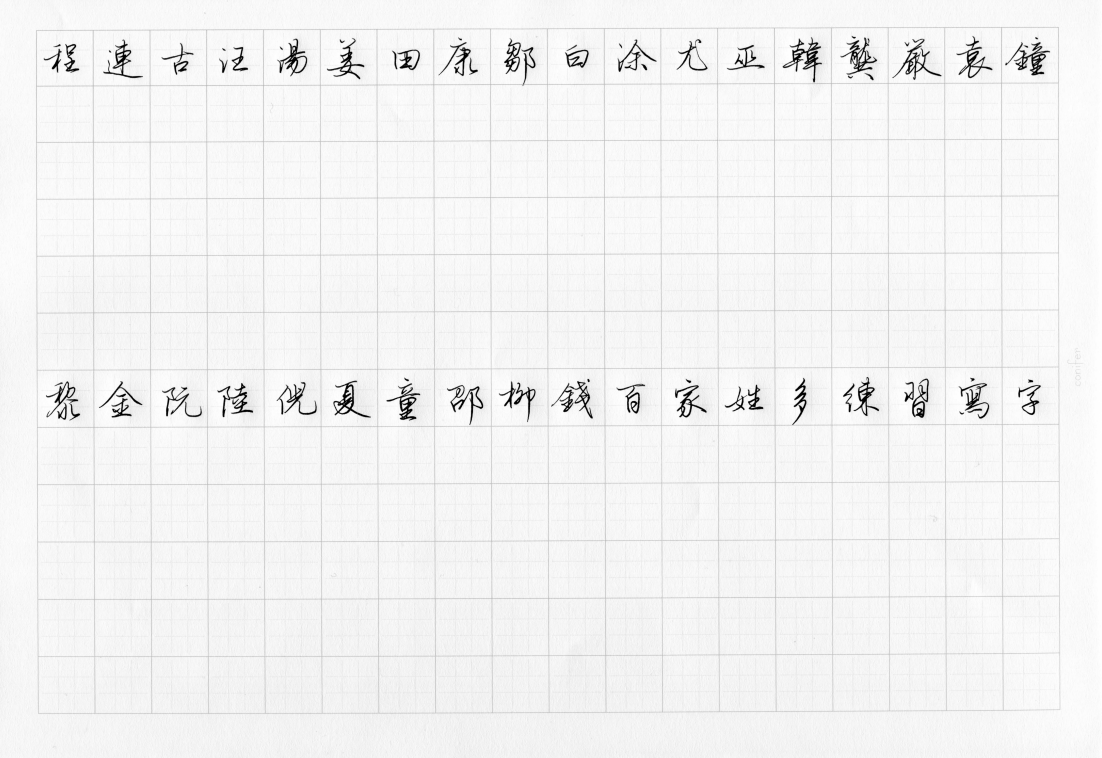 程連古汪湯姜田康鄒白涂尤巫韓龔嚴袁鐘
黎金阮陸倪夏童邵柳錢百家姓多練習寫字
conifer